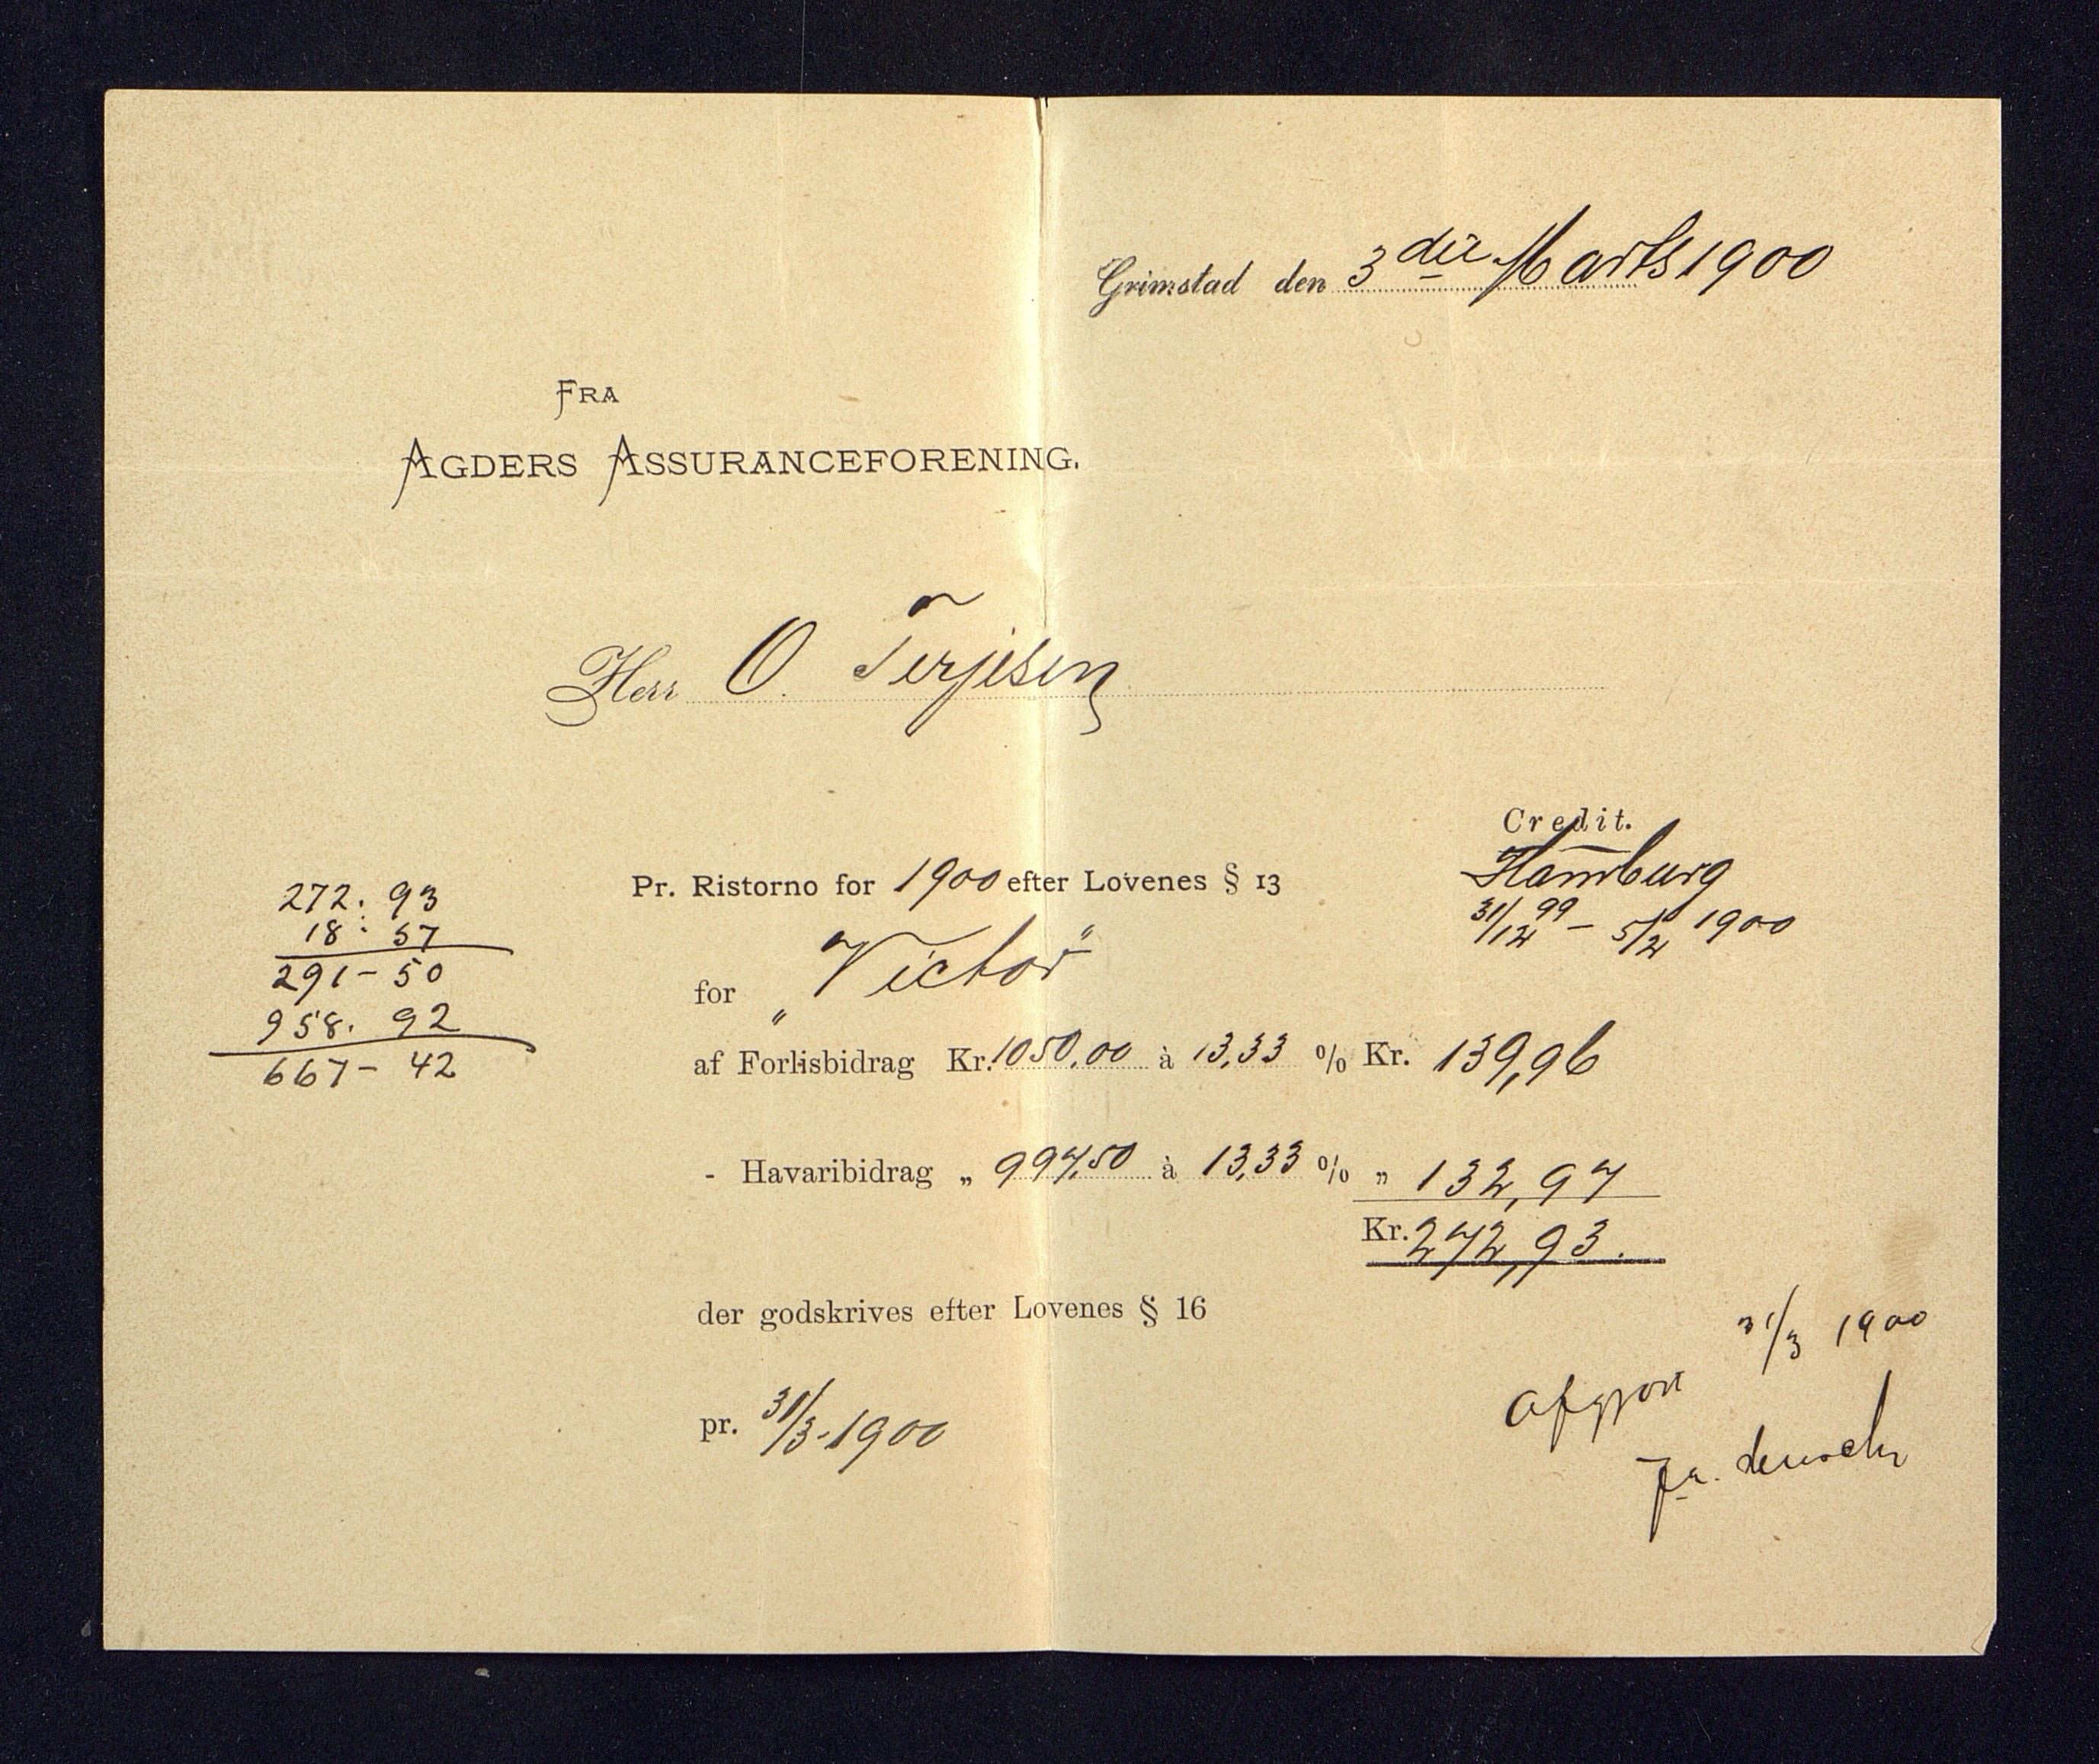 Grimstad den 3die Marts 1900
FRA
AGDERS ASSURANCEFORENING.
Herr O. Terjesen
Credit.
Hamburg
31/12 99 - 5/2 1900
Pr. Ristorno for 1900 efter Lovenes § 13
for „Victor"
af Forlisbidrag Kr. 1050,00 à 13,33 % Kr. 139,96
- Havaribidrag „ 997,50 à 13,33 % „ 132,97
Kr. 272,93.
der godskrives efter Lovenes § 16
pr. 31/3-1900
272. 93
18: 57
291- 50
958. 92
667- 42
31/3 1900
Afgjort